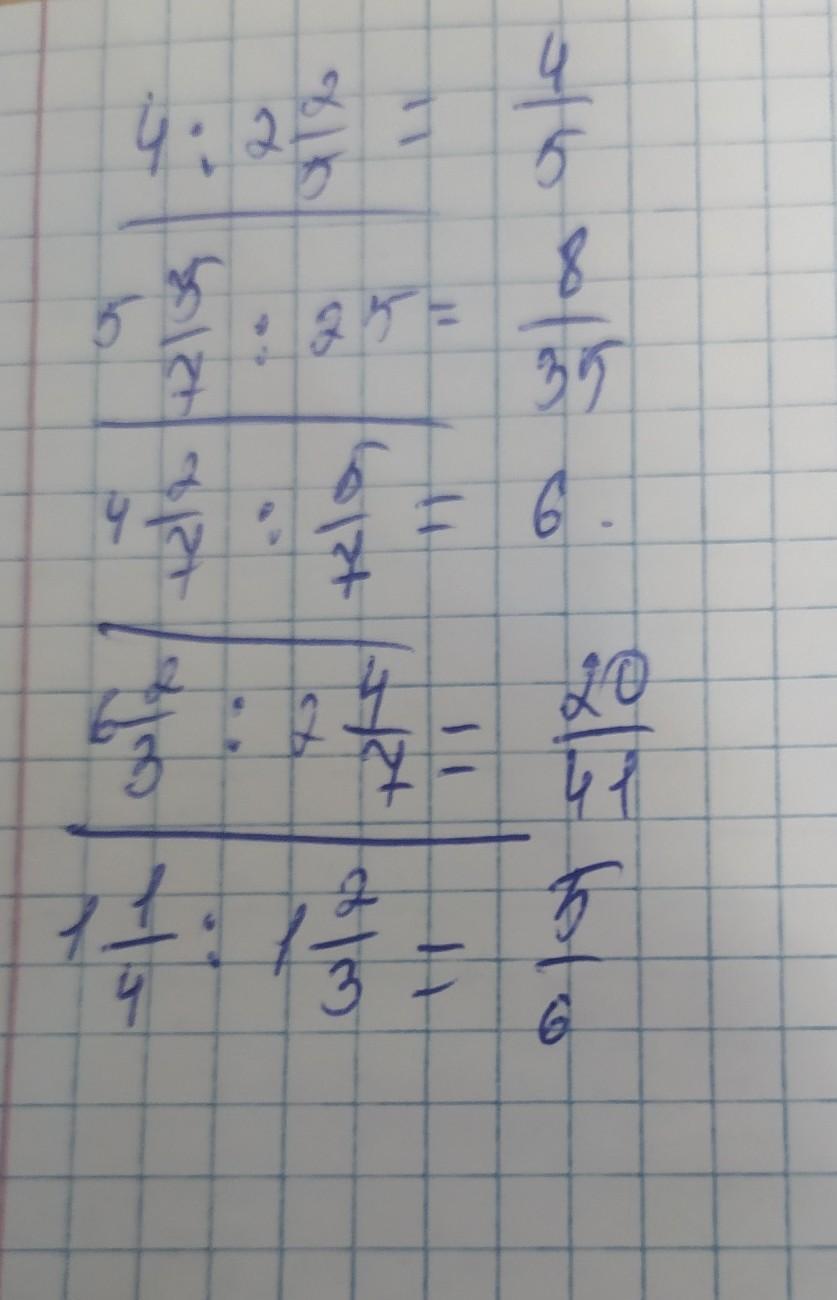 4 : 2 2/5 = 4/5
5 5/7 : 25 = 8/35
4 2/7 : 5/7 = 6.
6 2/3 : 2 4/7 = 20/41
1 1/4 : 1 2/3 = 5/6